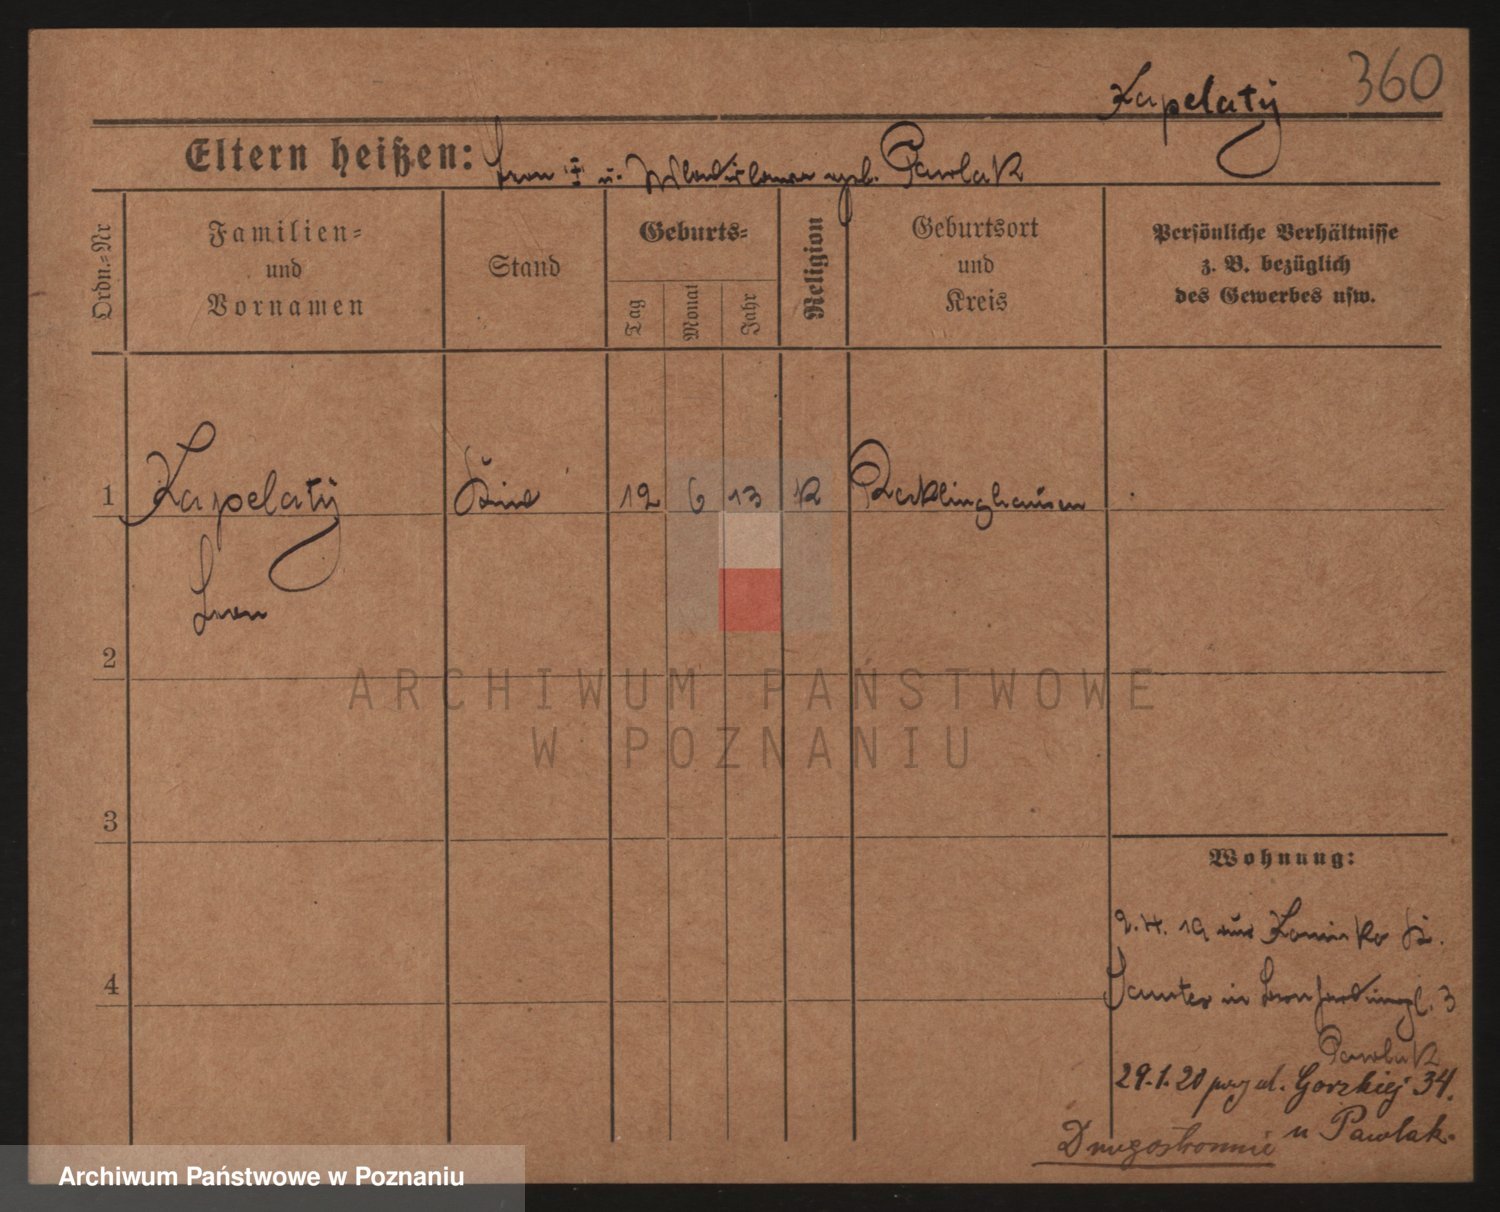 360
Kapelatÿ
Eltern heißen: Leon I u. Wladislawa geb. Pawlak
Ordn.=Nr
Familien=
und
Vornamen
Stand
Geburts=
Tag
Monat
Jahr
Religion
Geburtsort
und
Kreis
Persönliche Verhältnisse
z. B. bezüglich
des Gewerbes usw.
1 Kapelatÿ Kind 12 6 13 K Recklinghausen
Leon
2
3
4
Wohnung:
2.4.19 aus Kr.
Samter in 3
Pawlak
29.1.20 przy ul. Gorzkiej 34.
u Pawlak.
Drugostronnie
ARCHIWUM PAŃSTWOWE
W POZNANIU
Archiwum Państwowe w Poznaniu